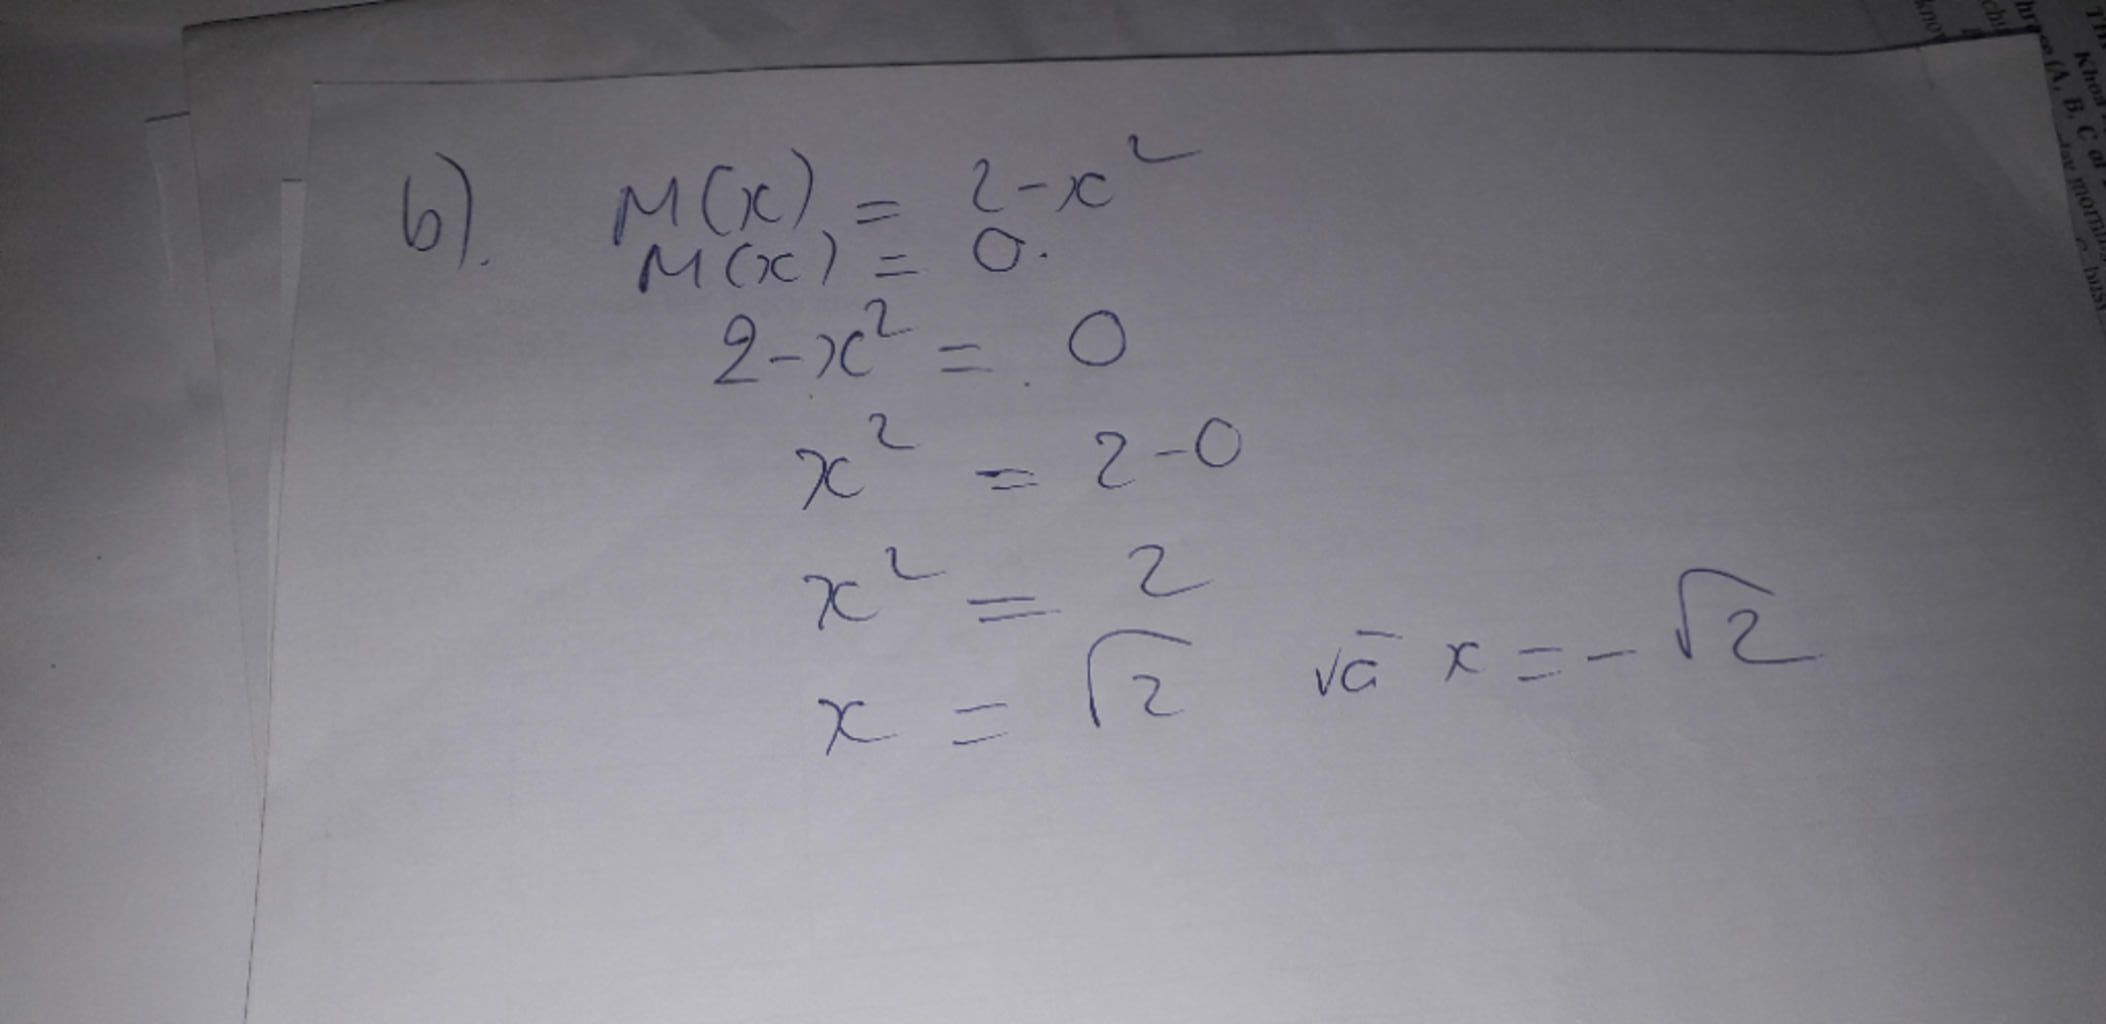 b). M(x) = 2-x²
M(x) = 0.
2-x² = 0
x² = 2-0
x² = 2
x = √2 và x = -√2
Khoa
(A, B, C or